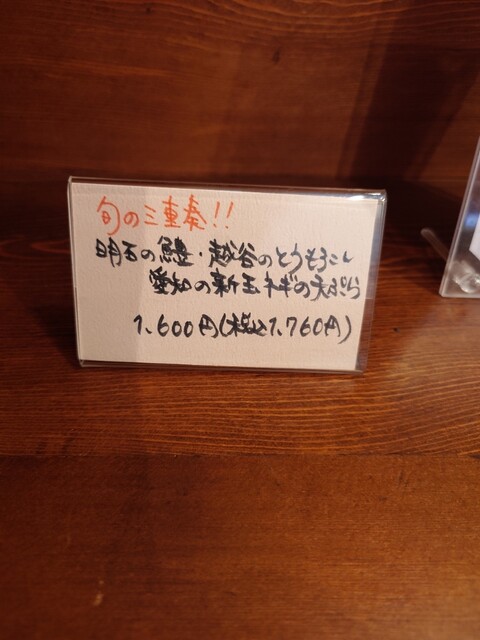 旬の三重奏!!
明石の鱧・越谷のとうもろこし
愛知の新玉ネギの天ぷら
1.600円(税込1.760円)